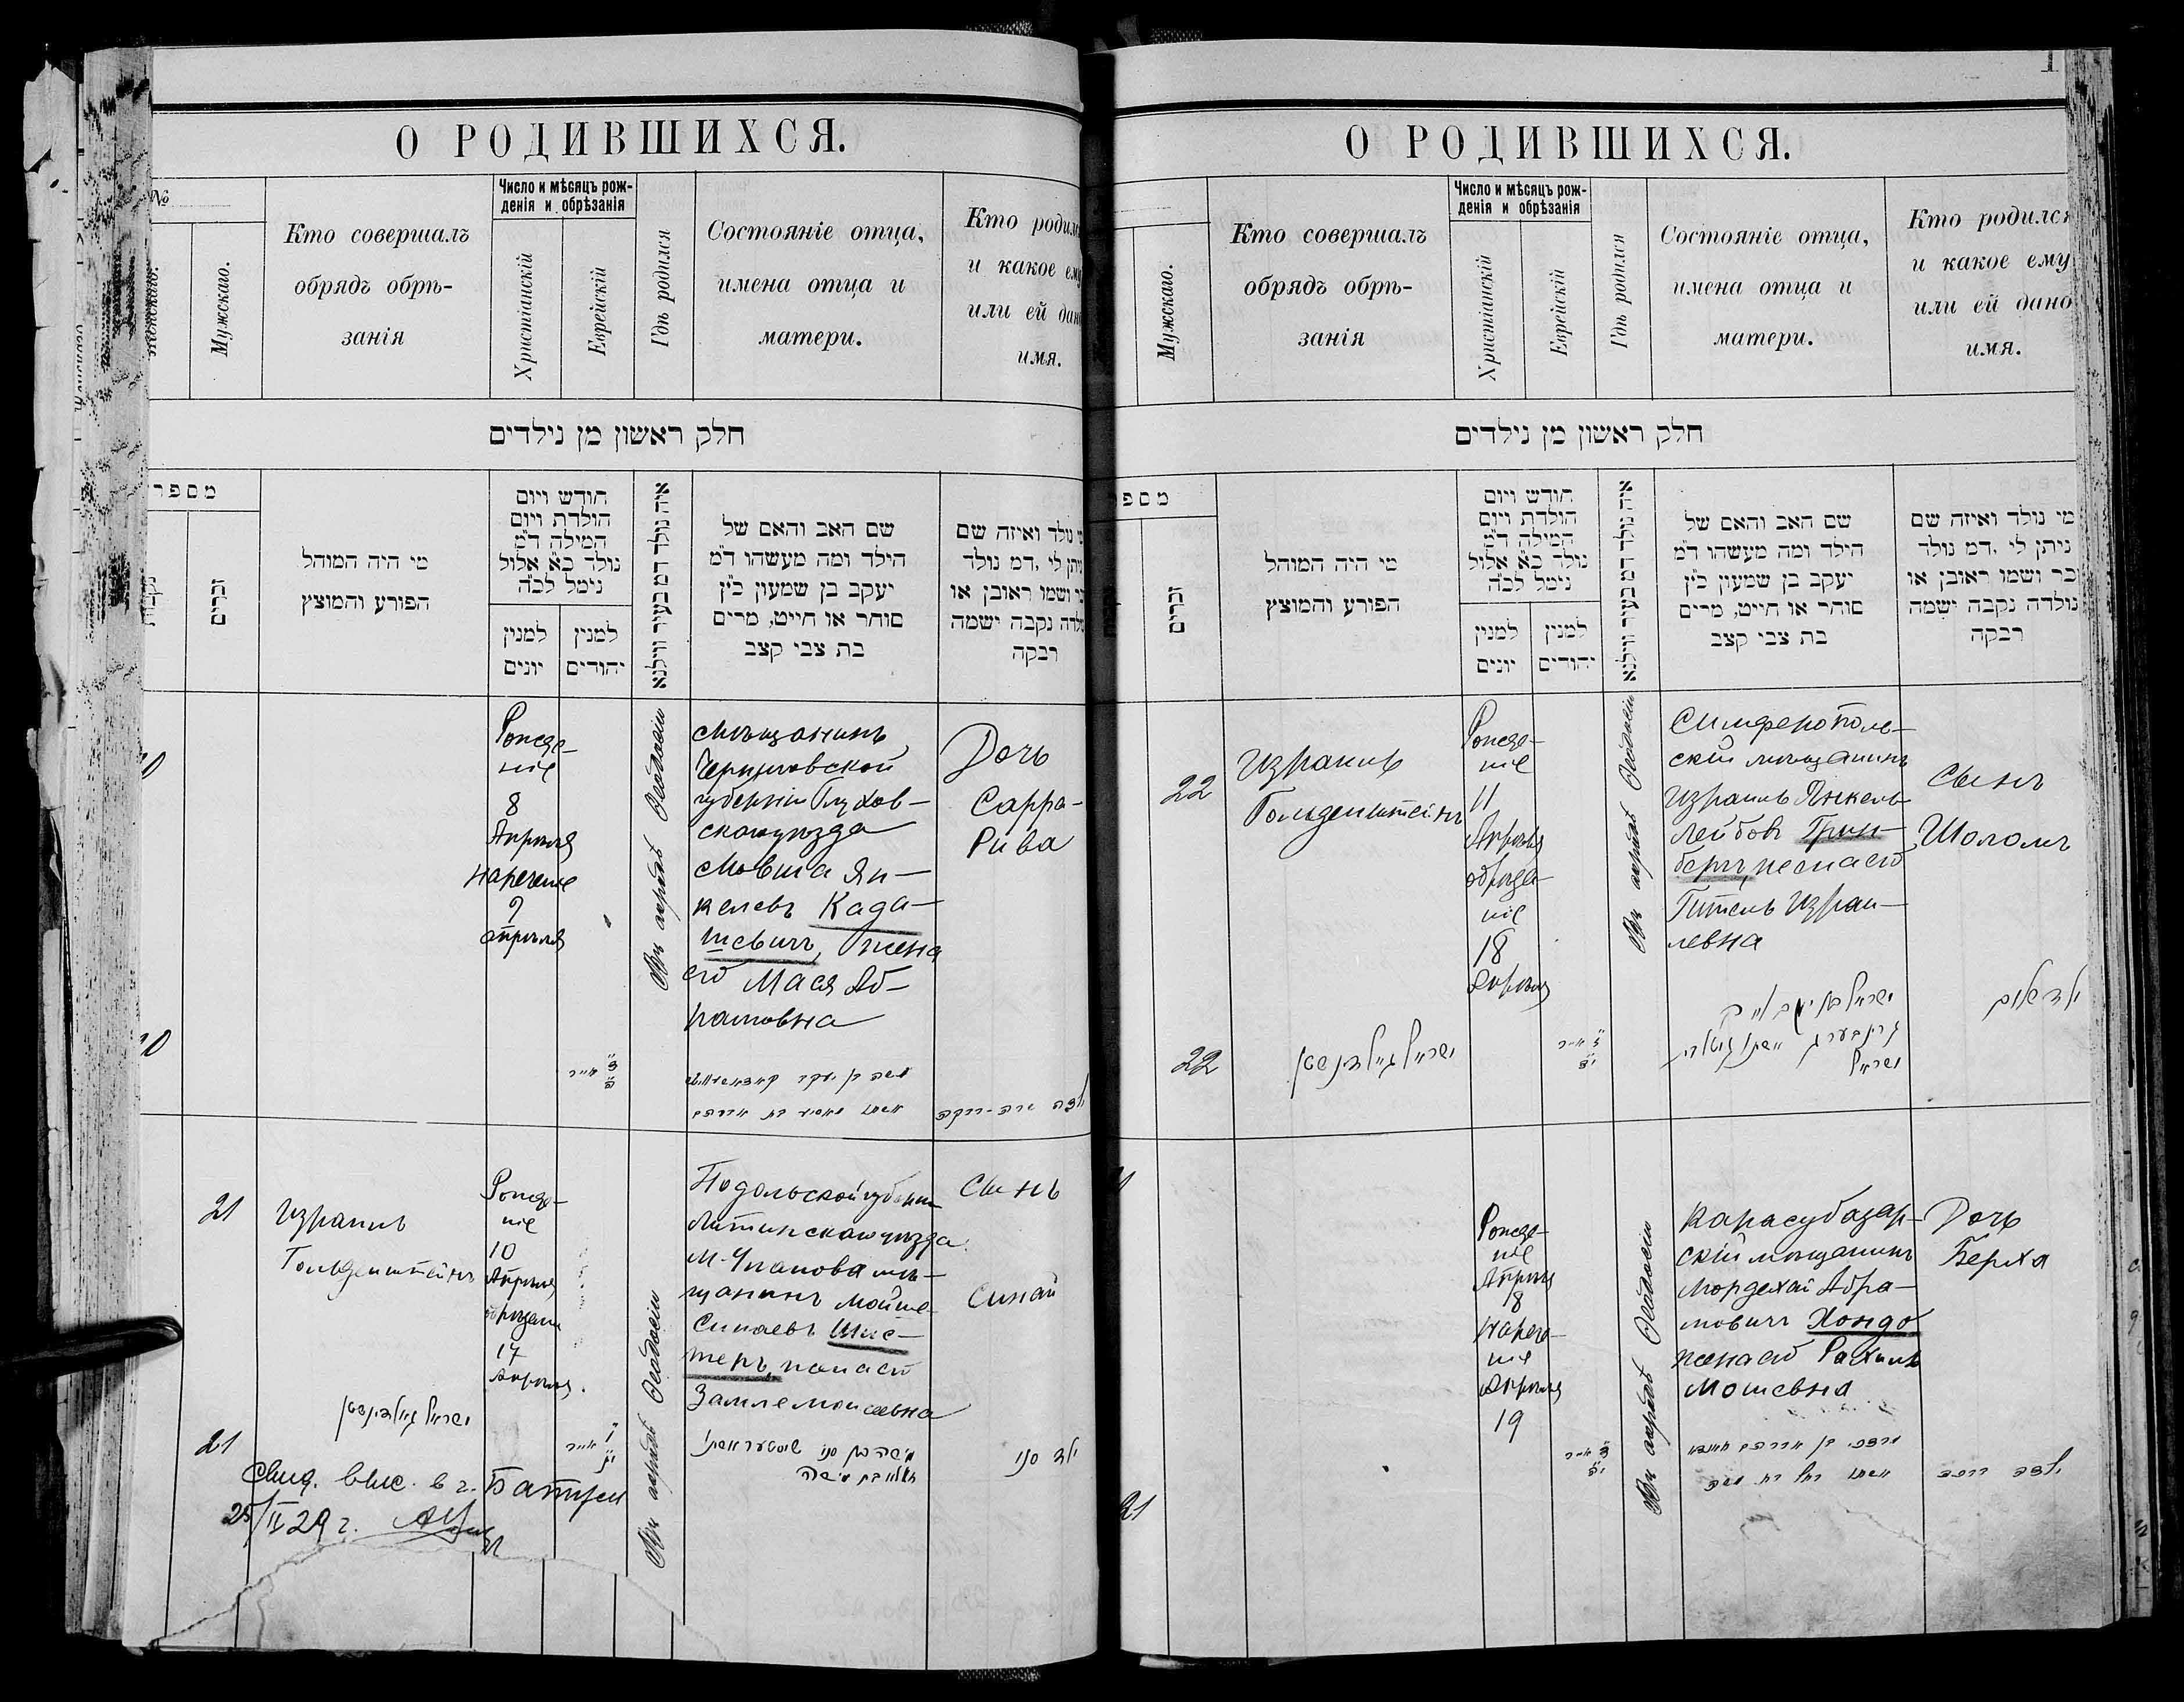 О РОДИВШИХСЯ.
№
Мужскаго.
Кто совершалъ
обрядъ обрѣ-
занія
Число и мѣсяцъ рож-
денія и обрѣзанія
Христіанскій
Еврейскій
Гдѣ родился
Состояніе отца,
имена отца и
матери.
Кто
и какое
или ей
имя.
חלק ראשון מן נילדים
זכרים
מי היה המוהל
הפורע והמוצץ
חודש ויום
הולדת ויום
המילה ד״מ
נולד כ״א אלול
נימל לכ״ה
למנין
יונים
למנין
יהודים
איה נולד דמ בעיר ווילנא
שם האב והאם של
הילד ומה מעשהו ד״מ
יעקב בן שמעון כ״ץ
סוחר או חייט, מרים
בת צבי קצב
נולד ואיזה שם
ניתן לי, דמ נולד
ושמו ראובן או
נקבה ישמה
רבקה
Рожде-
ніе
8
Апрѣля
Наречение
9
апрѣля
Въ городѣ Ѳеодосіи
Мѣщанинъ
Черниговской
губерніи Глухов-
скаго уѣзда
Мовша Ян-
келевъ Када-
шевичъ, жена
его Мася Аб-
рамовна
Дочь
Сарра-
Рива
21
Израиль
Гольденштейнъ
Рожде-
ніе
10
Апрѣля
17
Апрѣля
Въ городѣ Ѳеодосіи
Подольской губерніи
Литинскаго уѣзда
М. Уланова мѣ-
щанинъ Мойше
Синаевъ Шис-
теръ, жена его
Замле Моисеевна
Сынъ
Синай
ישראל גולדינשטיין
21
ילד סני
Свид. выс. в г. Батум
25/II 29 г.
О РОДИВШИХСЯ.
Мужскаго.
Кто совершалъ
обрядъ обрѣ-
занія
Число и мѣсяцъ рож-
денія и обрѣзанія
Христіанскій
Еврейскій
Гдѣ родился
Состояніе отца,
имена отца и
матери.
Кто родился
и какое ему
или ей дано
имя.
חלק ראשון מן נילדים
זכרים
מי היה המוהל
הפורע והמוצץ
חודש ויום
הולדת ויום
המילה ד״מ
נולד כ״א אלול
נימל לכ״ה
למנין
יונים
למנין
יהודים
איה נולד דמ בעיר ווילנא
שם האב והאם של
הילד ומה מעשהו ד״מ
יעקב בן שמעון כ״ץ
סוחר או חייט, מרים
בת צבי קצב
מי נולד ואיזה שם
ניתן לי, דמ נולד
זכר ושמו ראובן או
נולדה נקבה ישמה
רבקה
22
Израиль
Гольденштейнъ
Рожде-
ніе
11
Апрѣля
обрѣза-
ніе
18
Апрѣля
Въ городѣ Ѳеодосіи
Симферополь-
скій мѣщанинъ
Израиль Янкель-
Лейбовъ Грин-
бергъ, жена его
Гитель Израи-
левна
Сынъ
Шоломъ
22
ישראל גולדינשטיין
ילד שלום
Рожде-
ніе
Апрѣля
18
Нарече-
ніе
Апрѣля
19
Въ городѣ Ѳеодосіи
Карасубазар-
скій мѣщанинъ
Мордехай Абра-
мовичъ Хондо
жена его Рахиль
Мошевна
Дочь
Берха
21